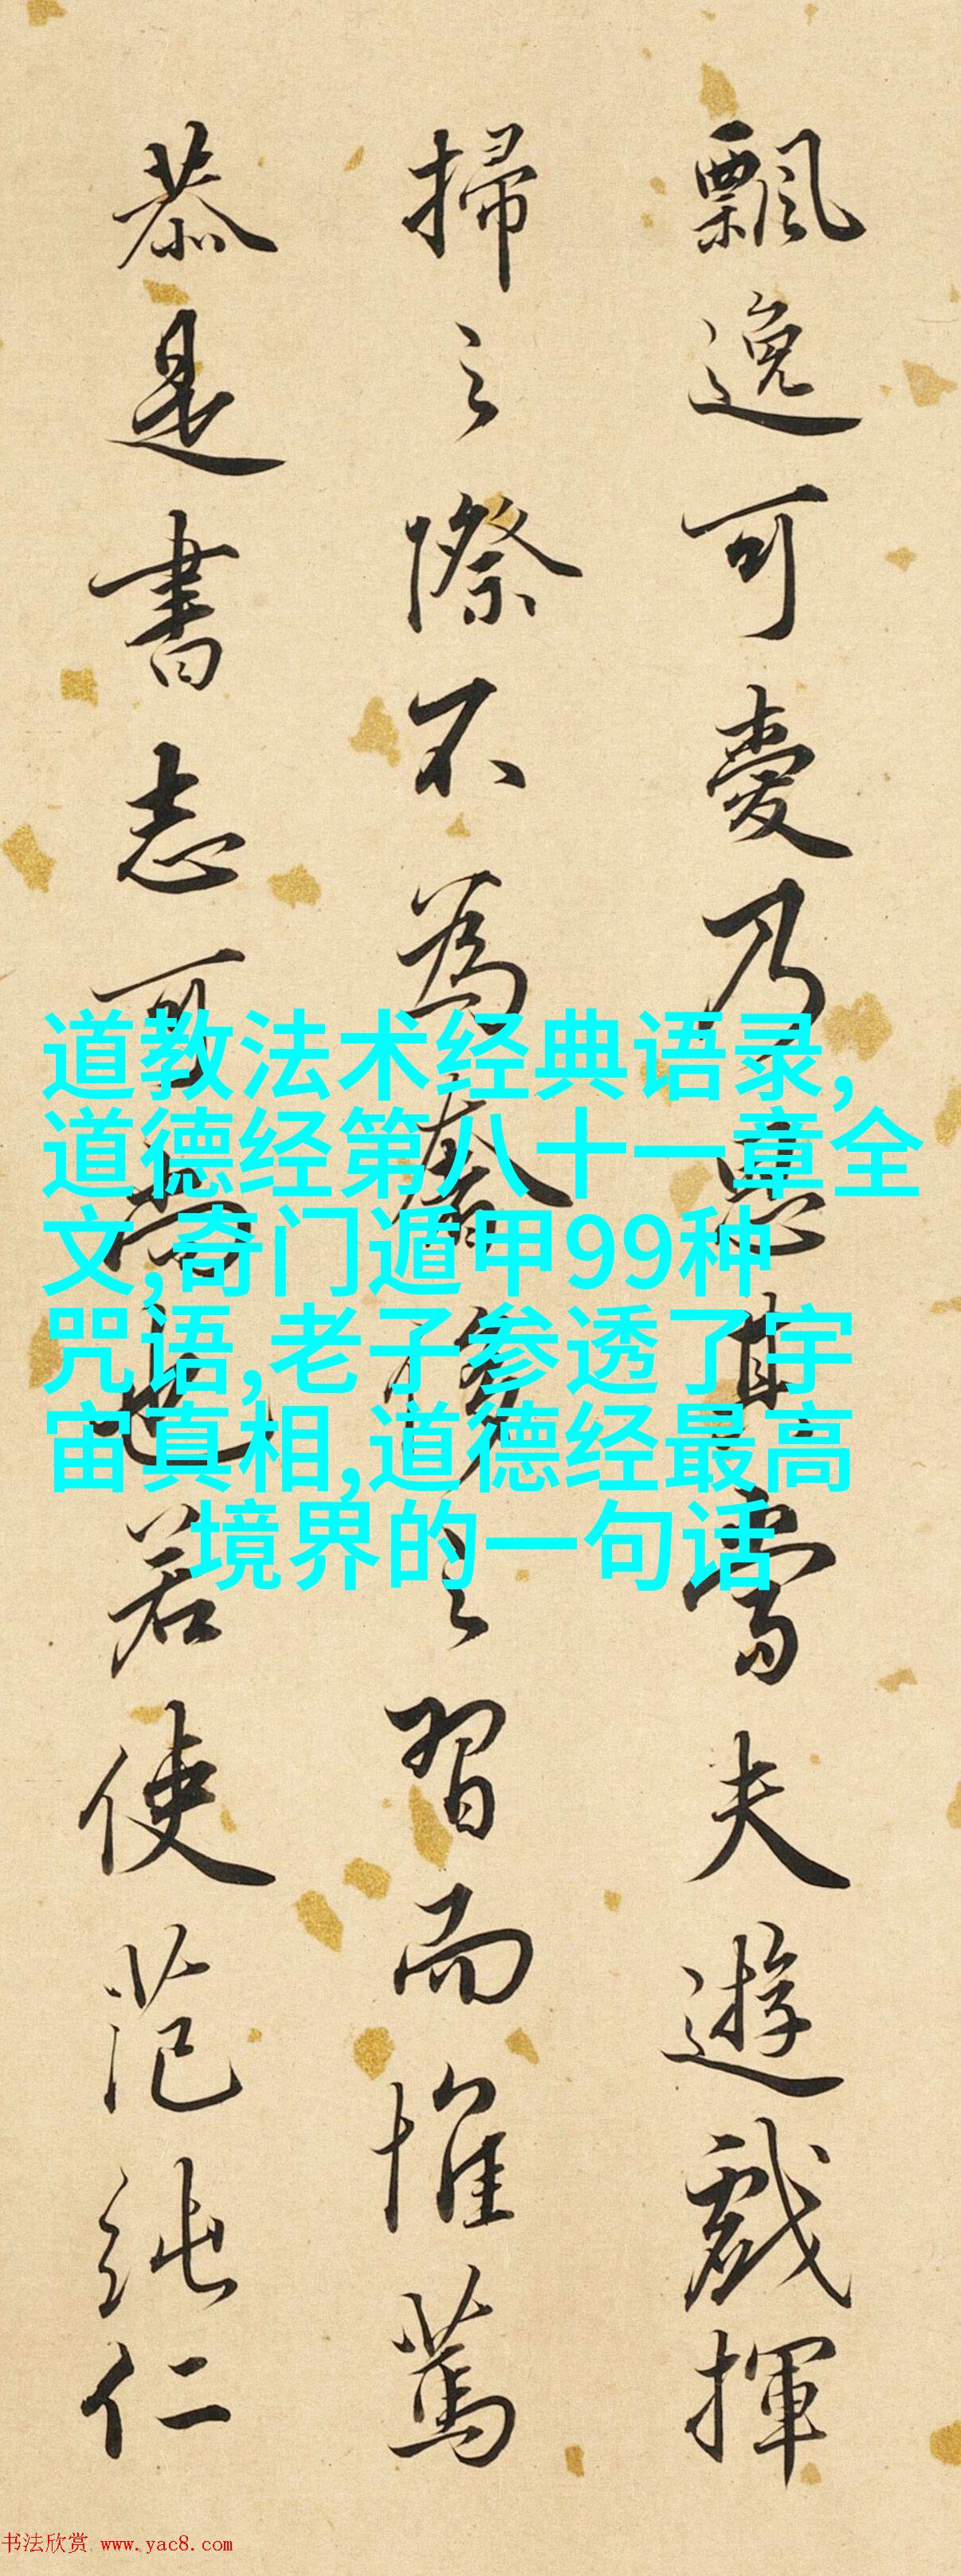 飄逸可愛乃思其電夫遊戲揮
掃之際不為奢侈之習而惟篤
恭是書志可尚也若使范純仁
道教法术经典语录,
道德经第八十一章全
文,奇门遁甲99种
咒语,老子参透了宇
宙真相,道德经最高
境界的一句话
书法欣赏 www.yac8.com